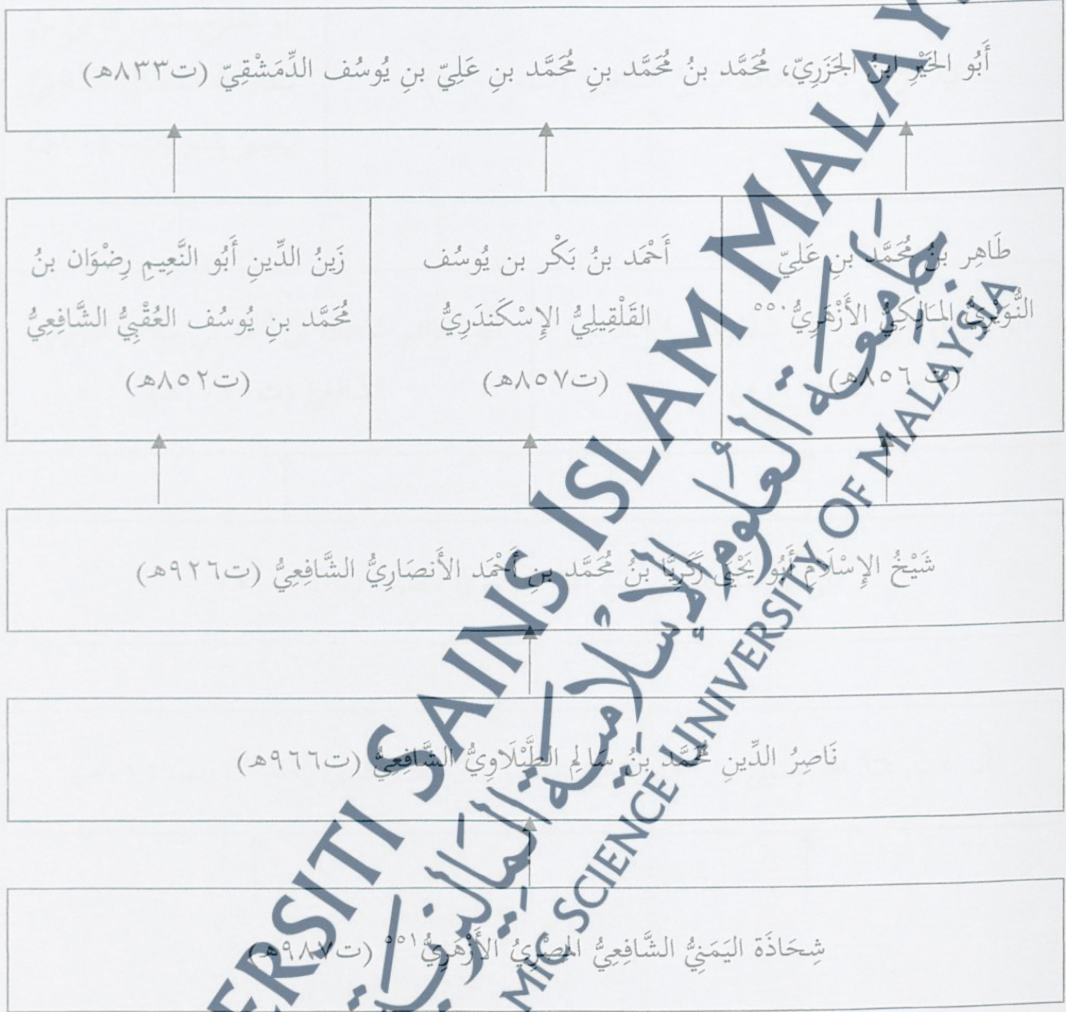 أَبُو الخَيْرِ ابنُ الجَزَرِيّ، مُحَمَّد بنُ مُحَمَّد بنِ مُحَمَّد بنِ عَلِيّ بنِ يُوسُف الدِّمَشْقِيّ (ت٨٣٣هـ)
طَاهِر بنُ مُحَمَّد بنِ عَلِيّ
النُّوَيْرِيُّ المَالِكِيُّ الأَزْهَرِيُّ٥٥٠
(ت٨٥٦هـ)
أَحْمَد بنُ بَكْر بن يُوسُف
القَلْقِيلِيُّ الإِسْكَندَرِيُّ
(ت٨٥٧هـ)
زَينُ الدِّينِ أَبُو النَّعِيمِ رِضْوَان بنُ
مُحَمَّد بنِ يُوسُف العُقْبِيُّ الشَّافِعِيُّ
(ت٨٥٢هـ)
شَيْخُ الإِسْلَام أَبُو يَحْيَى زَكَرِيَّا بنُ مُحَمَّد بنِ أَحْمَد الأَنصَارِيُّ الشَّافِعِيُّ (ت٩٢٦هـ)
نَاصِرُ الدِّينِ مُحَمَّد بنُ سَالِم الطَّبْلَاوِيُّ الشَّافِعِيُّ (ت٩٦٦هـ)
شِحَاذَة اليَمَنِيُّ الشَّافِعِيُّ المِصْرِيُّ الأَزْهَرِيُّ٥٥١ (ت٩٨٧هـ)
SAINS ISLAM
جامعة العلوم الإسلامية الماليزية
SCIENCE UNIVERSITY OF MALAYSIA